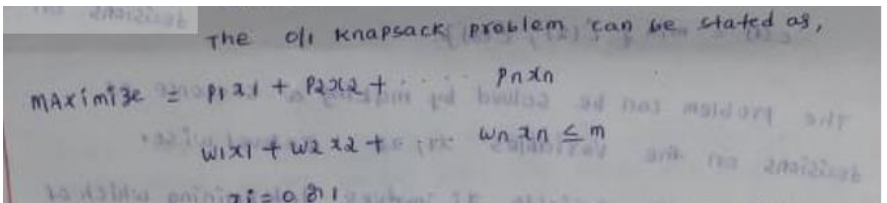 The 0/1 knapsack problem can be stated as,
MAximize = p1x1 + p2x2 + ..... pnxn
w1x1 + w2x2 + ... wnxn ≤ m
xi = 0 or 1